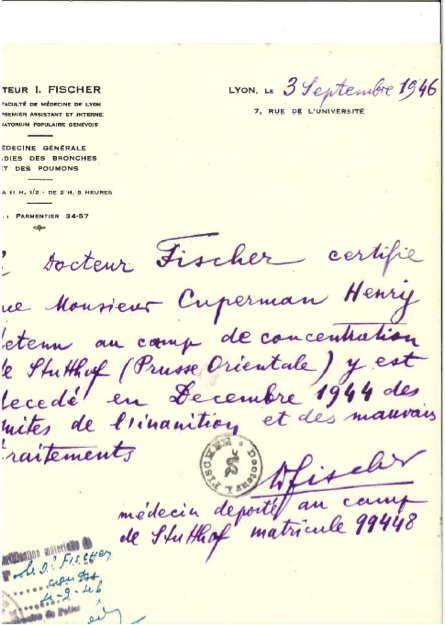 TEUR I. FISCHER
FACULTÉ DE MÉDECINE DE LYON
PREMIER ASSISTANT ET INTERNE
ATORIUM POPULAIRE GENEVOIS
ÉDECINE GÉNÉRALE
DIES DES BRONCHES
ET DES POUMONS
A 11 H. 1/2 - DE 2 H. 5 HEURES
PARMENTIER 34-57
LYON, LE 3 Septembre 1946
7, RUE DE L'UNIVERSITÉ
Docteur Fischer certifie
ue Monsieur Cuperman Henry
étenu au camp de concentration
de Stutthof (Prusse Orientale) y est
decedé en Decembre 1944 des
uites de l'inanition et des mauvais
traitements
Docteur I. FISCHER
Fischer
médecin deporté au camp
de Stutthof matricule 99448
matérielle de
le Dr FISCHER
4-9-46
de Police